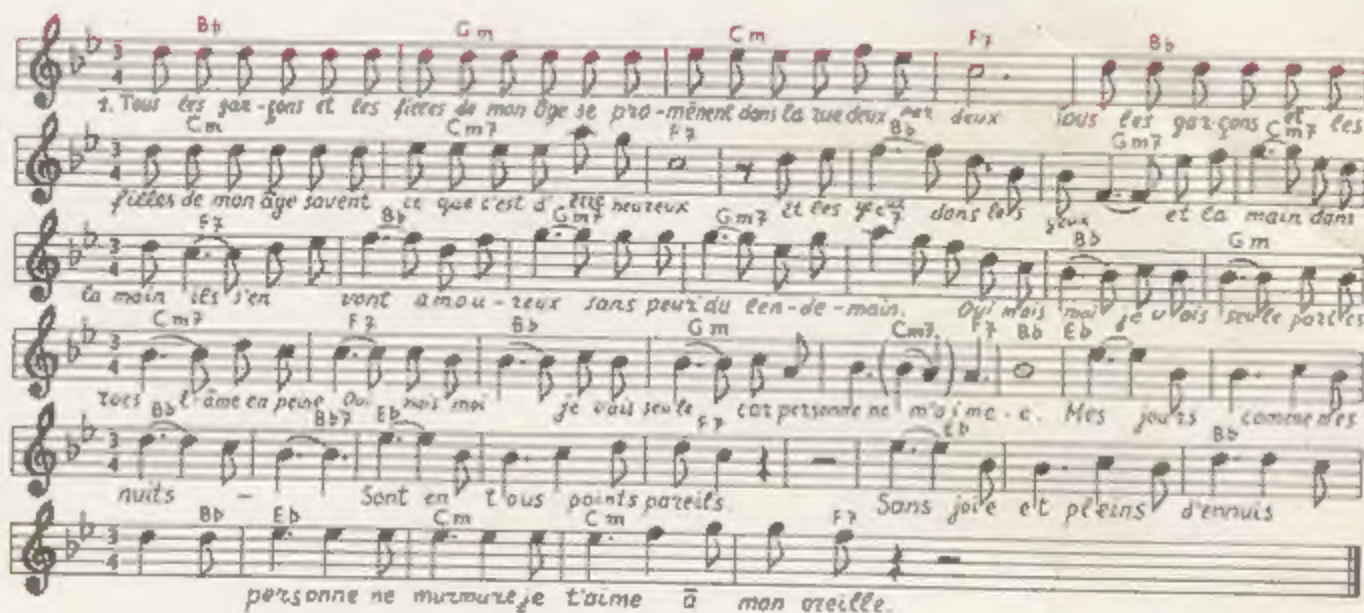 Bb Gm Cm F7 Bb
1. Tous les gar-çons et les filles de mon âge se pro-mènent dans la rue deux par deux Tous les gar-çons et les
Cm Cm7 F7 Bb Gm7 Cm7
filles de mon âge savent ce que c'est d'être heureux Et les yeux dans les yeux et la main dans
F7 Bb Gm7 Gm7 F7 Bb Gm
la main ils s'en vont amou-reux sans peur du len-de-main. Oui mais moi je vais seule par les
Cm7 F7 Bb Gm Cm7 F7 Bb Eb
rues l'âme en peine Oui mais moi je vais seule car personne ne m'aime-e. Mes jours comme mes
Bb Bb7 Eb F7 Eb Bb
nuits - Sont en tous points pareils. Sans joie et pleins d'ennuis
Bb Eb Cm Cm F7
personne ne murmure je t'aime ā mon oreille.